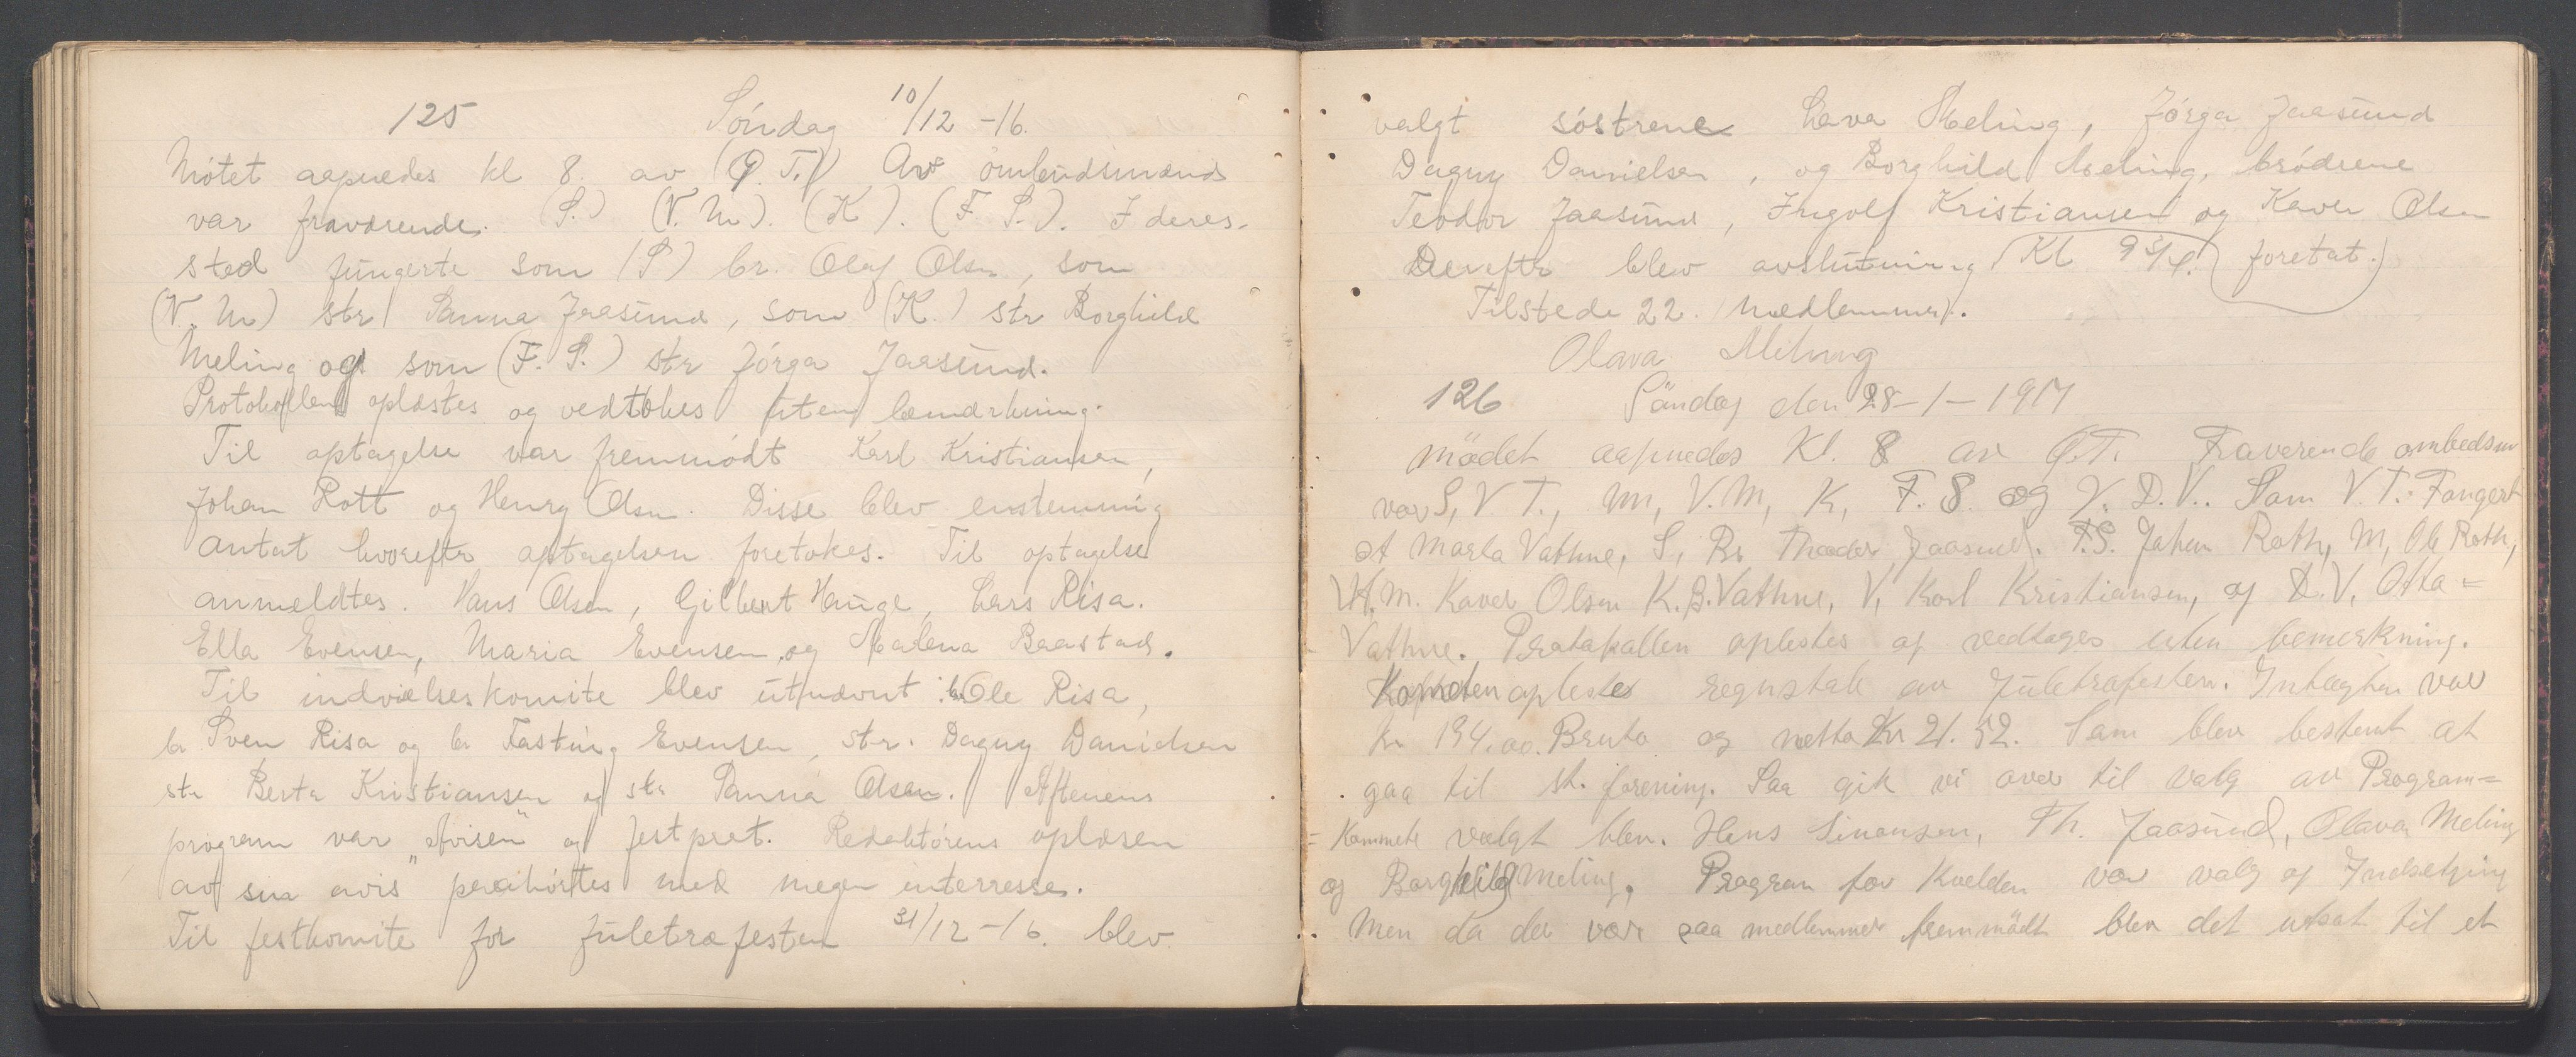 125 Söndag 10/12 -16.
Mötet aapnedes kl 8. av (Q. T.) Av ombudsmænd
var fraværende. (S.) (V. M). (K). (F. S.). I deres-
sted fungerte som (S) br. Olaf Olsen, som
(V. M) str Sanna Jaasund, som (K.) str Borghild
Meling og som (F. S.) str Jörga Jaasund.
Protokollen oplæstes og vedtokes uten bemærkning.
Til optagelse var fremmödt Karl Kristiansen,
Johan Rott og Henry Olsen. Disse blev enstemmig
antat hvorefter optagelsen foretokes. Til optagelse
anmeldtes. Hans Olsen, Gilbert Hauge, Lars Risa.
Ella Evensen, Maria Evensen og Malena Baastad.
Til indvielseskomite blev utnævnt: br Ole Risa,
br Sven Risa og br Fasting Evensen, str. Dagny Danielsen
str Berta Kristiansen og str Sanna Olsen. Aftenens
program var „Avisen" og festprat. Redaktörens oplæsen
av sin avis paahörtes med megen interresse.
Til festkomite for juletræfesten 31/12 -16. blev
valgt söstrene Lava Meling, Jörga Jaasund
Dagny Danielsen, og Borghild Meling, brödrene
Teodor Jaasund, Ingolf Kristiansen og Kaver Olsen
Derefter blev avslutning (Kl 9 3/4.) foretat.
Tilstede 22. medlemmer.
Olava Meling
126 Söndag den 28-1-1917
mödet aapnedes Kl. 8 av Q.T. Fraverende ombedsm
var S, V. T., M, V. M, K, F. S. og V. D. V.. Som V. T. Fongert
at Marta Vathne, S, Br Theodor Jaasund. F.S. Johan Roth, M, Ole Roth,
V.M. Kaver Olsen K. B. Vathne, V, Karl Kristiansen, og D. V, Otta-
Vathne. Protokallen oplestes og vedtages uten bemerkning.
Komiteen oplestes regnskab av Juletrafesten. Intægten var
kr 194.00. Bruto og netto Kr 21.52. Som blev bestemt at
gaa til st. forening. Saa gik vi over til valg av Program-
-Kommete valgt blev. Hans Simonsen, Th. Jaasund, Olava Meling
og Borghild Meling. Program for Kvelden var valg og Indsetging
Men da der var saa medlemmer fremmödt blev det utsat til et